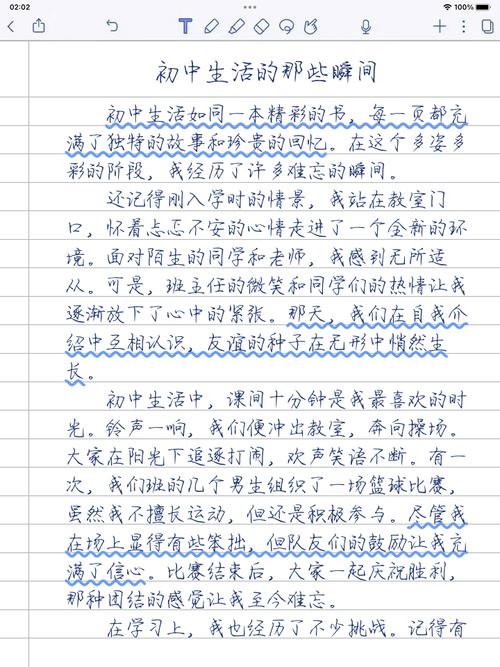 02:02
100%
初中生活的那些瞬间
初中生活如同一本精彩的书，每一页都充
满了独特的故事和珍贵的回忆。在这个多姿多
彩的阶段，我经历了许多难忘的瞬间。
还记得刚入学时的情景，我站在教室门
口，怀着忐忑不安的心情走进了一个全新的环
境。面对陌生的同学和老师，我感到无所适
从。可是，班主任的微笑和同学们的热情让我
逐渐放下了心中的紧张。那天，我们在自我介
绍中互相认识，友谊的种子在无形中悄然生
长。
初中生活中，课间十分钟是我最喜欢的时
光。铃声一响，我们便冲出教室，奔向操场。
大家在阳光下追逐打闹，欢声笑语不断。有一
次，我们班的几个男生组织了一场篮球比赛，
虽然我不擅长运动，但还是积极参与。尽管我
在场上显得有些笨拙，但队友们的鼓励让我充
满了信心。比赛结束后，大家一起庆祝胜利，
那种团结的感觉让我至今难忘。
在学习上，我也经历了不少挑战。记得有